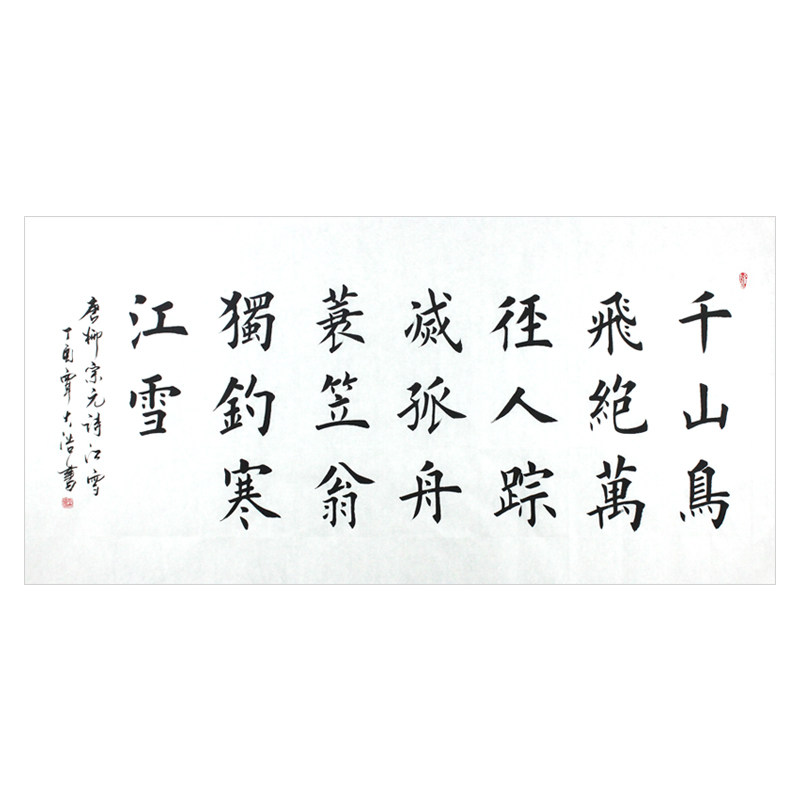 千山鳥
飛絕萬
徑人踪
滅孤舟
蓑笠翁
獨釣寒
江雪
唐柳宗元詩江雪
丁酉覃大浩書